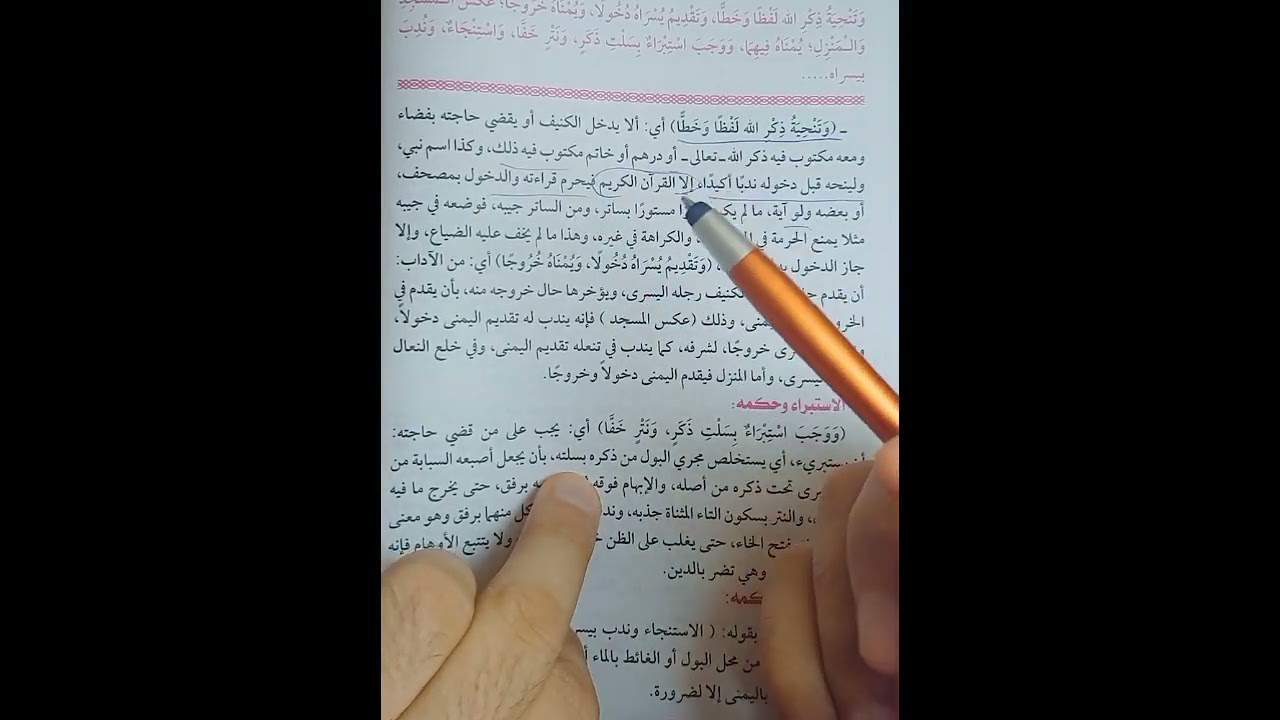 وَتَنْحِيَةُ ذِكْرِ الله لَفْظًا وَخَطًّا، وَتَقْدِيمُ يُسْرَاهُ دُخُولًا، وَيُمْنَاهُ خُرُوجًا؛ عَكْسَ الْـمَسْجِدِ
وَالْـمَنْزِلِ؛ يُمْنَاهُ فِيهِمَا، وَوَجَبَ اسْتِبْرَاءٌ بِسَلْتِ ذَكَرٍ، وَنَتْرٍ خَفَّا، وَاسْتِنْجَاءٌ، وَنُدِبَ
بيسراه.....
ـ (وَتَنْحِيَةُ ذِكْرِ الله لَفْظًا وَخَطًّا) أي: ألا يدخل الكنيف أو يقضي حاجته بفضاء
ومعه مكتوب فيه ذكر الله ـ تعالى ـ أو درهم أو خاتم مكتوب فيه ذلك، وكذا اسم نبي،
ولينحه قبل دخوله ندبًا أكيدًا، إلا القرآن الكريم فيحرم قراءته والدخول بمصحف،
أو بعضه ولو آية، ما لم يكن مستورًا بساتر، ومن الساتر جيبه، فوضعه في جيبه
مثلا يمنع الحرمة في والكراهة في غيره، وهذا ما لم يخف عليه الضياع، وإلا
جاز الدخول (وَتَقْدِيمُ يُسْرَاهُ دُخُولًا، وَيُمْنَاهُ خُرُوجًا) أي: من الآداب:
أن يقدم الكنيف رجله اليسرى، ويؤخرها حال خروجه منه، بأن يقدم في
يمنى، وذلك (عكس المسجد ) فإنه يندب له تقديم اليمنى دخولاً،
خروجًا، لشرفه، كما يندب في تنعله تقديم اليمنى، وفي خلع النعال
يسرى، وأما المنزل فيقدم اليمنى دخولاً وخروجًا.
الاستبراء وحكمه:
(وَوَجَبَ اسْتِبْرَاءٌ بِسَلْتِ ذَكَرٍ، وَنَتْرٍ خَفَّا) أي: يجب على من قضي حاجته:
يستبريء، أي يستخلص مجري البول من ذكره بسلته، بأن يجعل أصبعه السبابة من
تحت ذكره من أصله، والإبهام فوقه برفق، حتى يخرج ما فيه
والنتر بسكون التاء المثناة جذبه، كل منهما برفق وهو معنى
الخاء، حتى يغلب على الظن ولا يتتبع الأوهام فإنه
وهي تضر بالدين.
بقوله: ( الاستنجاء وندب
من محل البول أو الغائط بالماء
باليمنى إلا لضرورة.